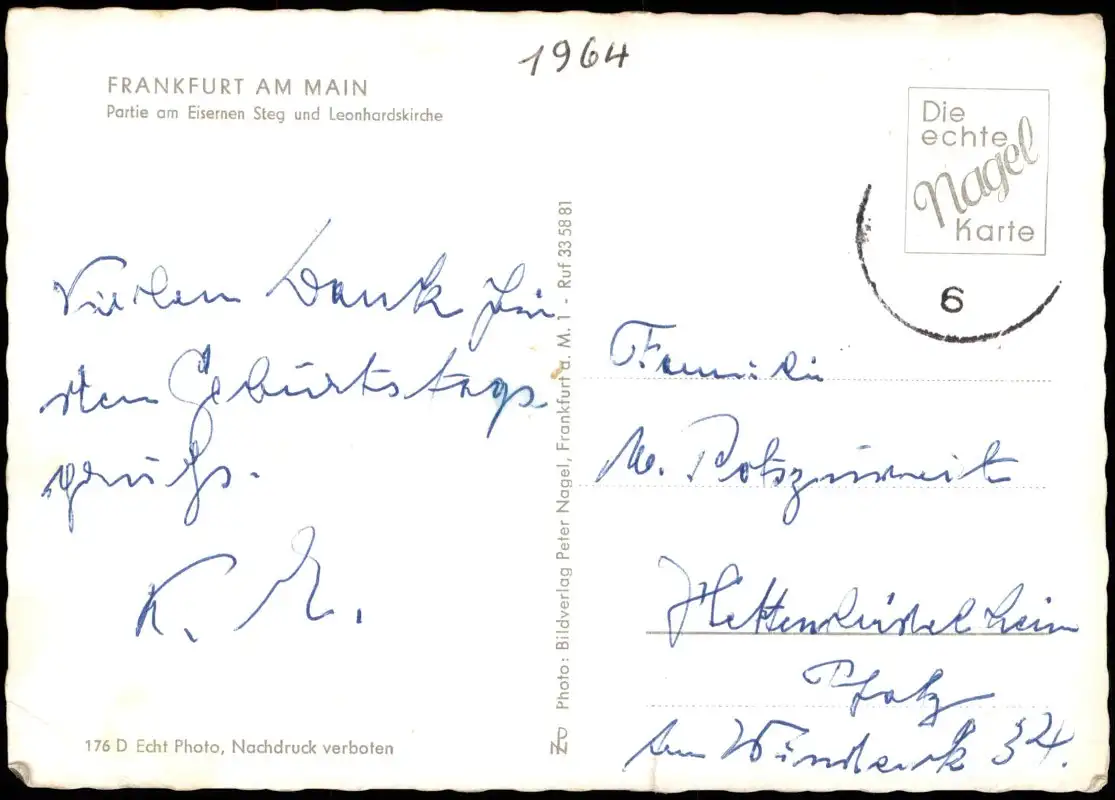 1964
FRANKFURT AM MAIN
Partie am Eisernen Steg und Leonhardskirche
Die
echte
Nagel
Karte
6
Vielen Dank für
den Geburtstags
grufs.
K.
Photo: Bildverlag Peter Nagel, Frankfurt a. M. 1 - Ruf 33 58 81
Familie
Hettenleidelheim
Pfalz
Am Windeck 34.
176 D Echt Photo, Nachdruck verboten